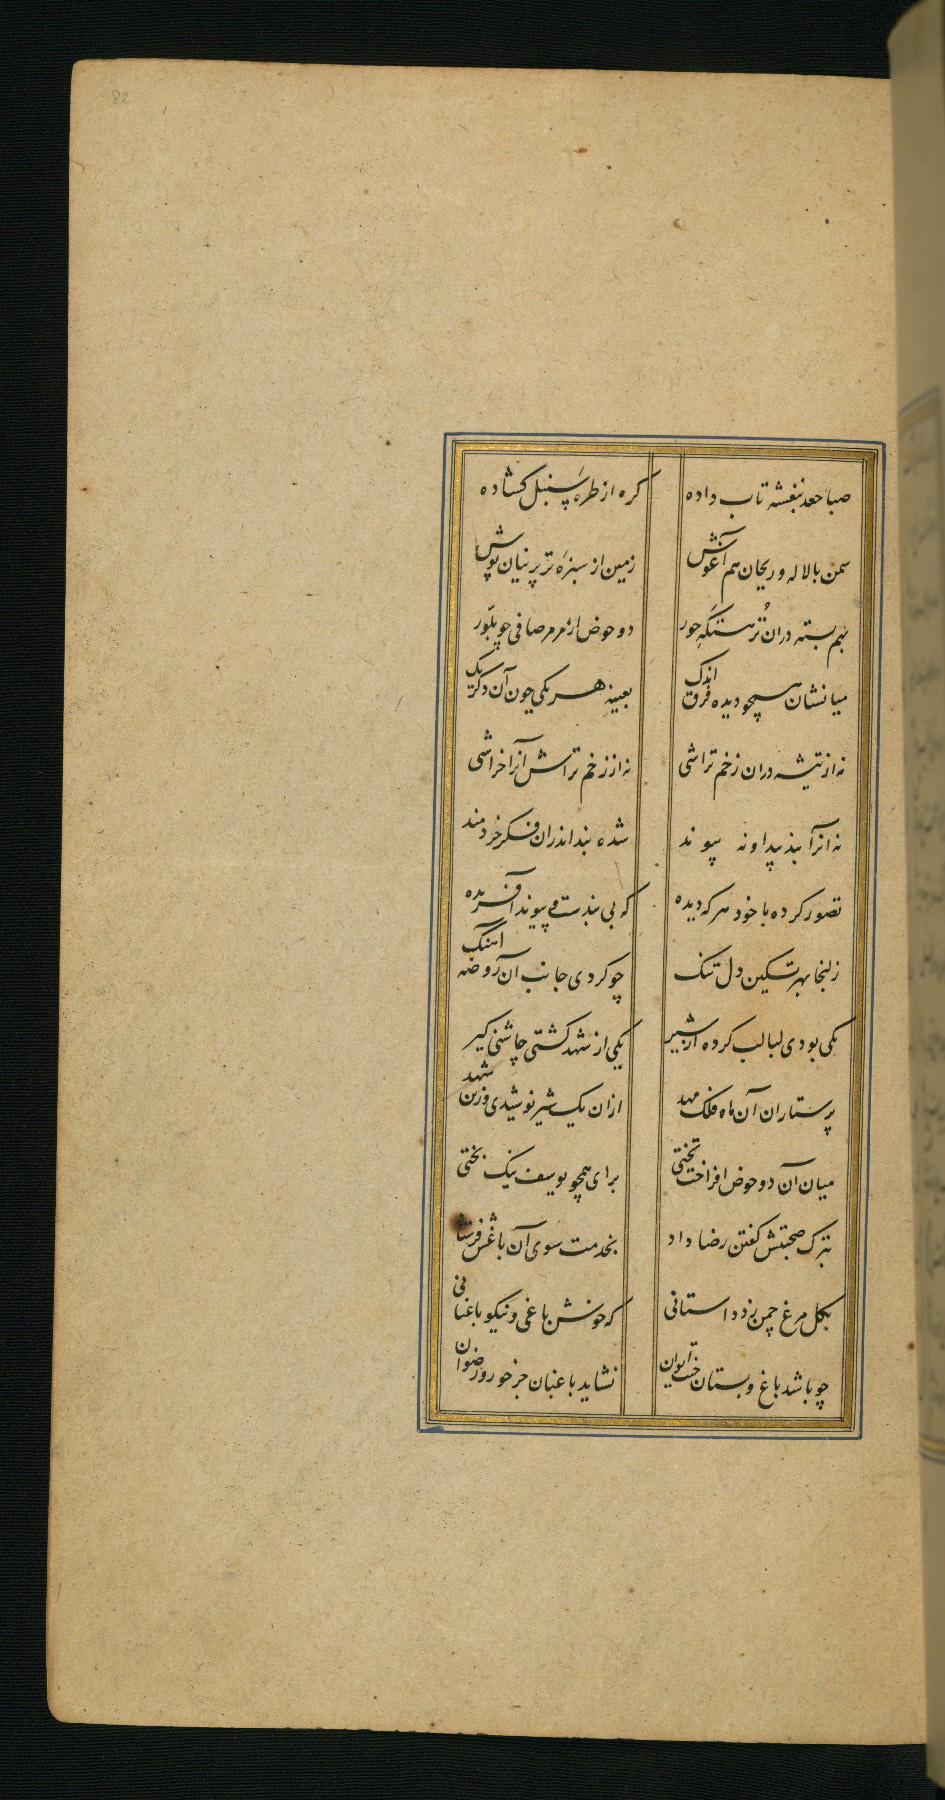 82
صبا جعد بنفشه تاب داده گره از طرهٔ سنبل گشاده
سمن با لاله و ریحان هم آغوش زمین از سبزهٔ تر پرنیان پوش
بهم بسته دران نُزهتگهِ حور دو حوض از مرمر صافی چو بلّور
میانشان هیچو دیده فرق اندک بعینه هر یکی چون آن دگر یک
نه از تیشه دران زخم تراشی نه از زخم تراش آنرا خراشی
نه انرا بند پیدا و نه پیوند شده بند اندران فکر خردمند
تصور کرده با خود هر که دیده که بی بندست و پیوند آفریده
زلیخا بهر تسکین دل تنک چو کردی جانب آن روضه آهنگ
یکی بودی لبالب کرده از شیر یکی از شهد گشتی چاشنی گیر
پرستاران آن ماه فلک مهد ازان یک شیر نوشیدی وزین شهد
میان آن دو حوض افراخت تختی برای همچو یوسف نیک بختی
بترک صحبتش گفتن رضا داد بخدمت سوی آن باغش فرستاد
بکل مرغ چمن زد داستانی که خوش باغی و نیکو باغبانی
چو باشد باغ و بستان جنت ایوان نشاید باغبان جز حور و رضوان